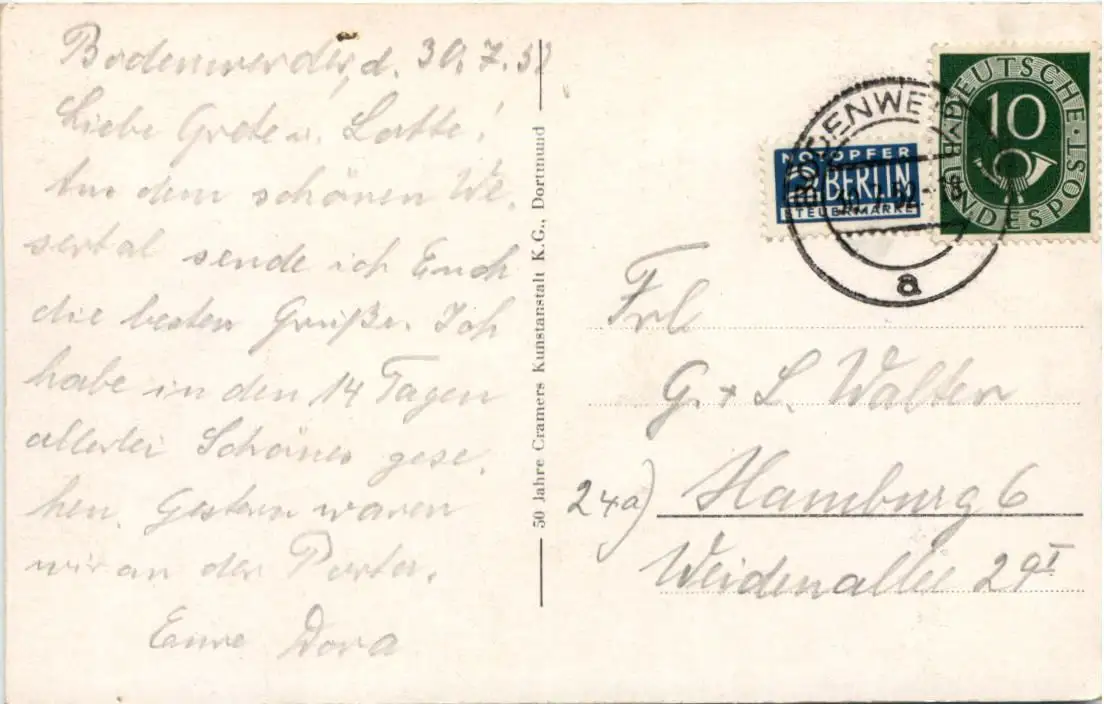 Bodenwerder, d. 30.7.52
Liebe Grete u. Lotte!
Aus dem schönen We-
sertal sende ich Euch
die besten Grüße. Ich
habe in den 14 Tagen
allerlei Schönes gese-
hen. Gestern waren
wir an der Porta.
Eure Dora
50 Jahre Cramers Kunstanstalt K.G., Dortmund
NOTOPFER
2 BERLIN
STEUERMARKE
BODENWERDER
30.7.52
a
10
DEUTSCHE BUNDESPOST
Frl
G. + L. Walter
24a) Hamburg 6
Weidenallee 29 I